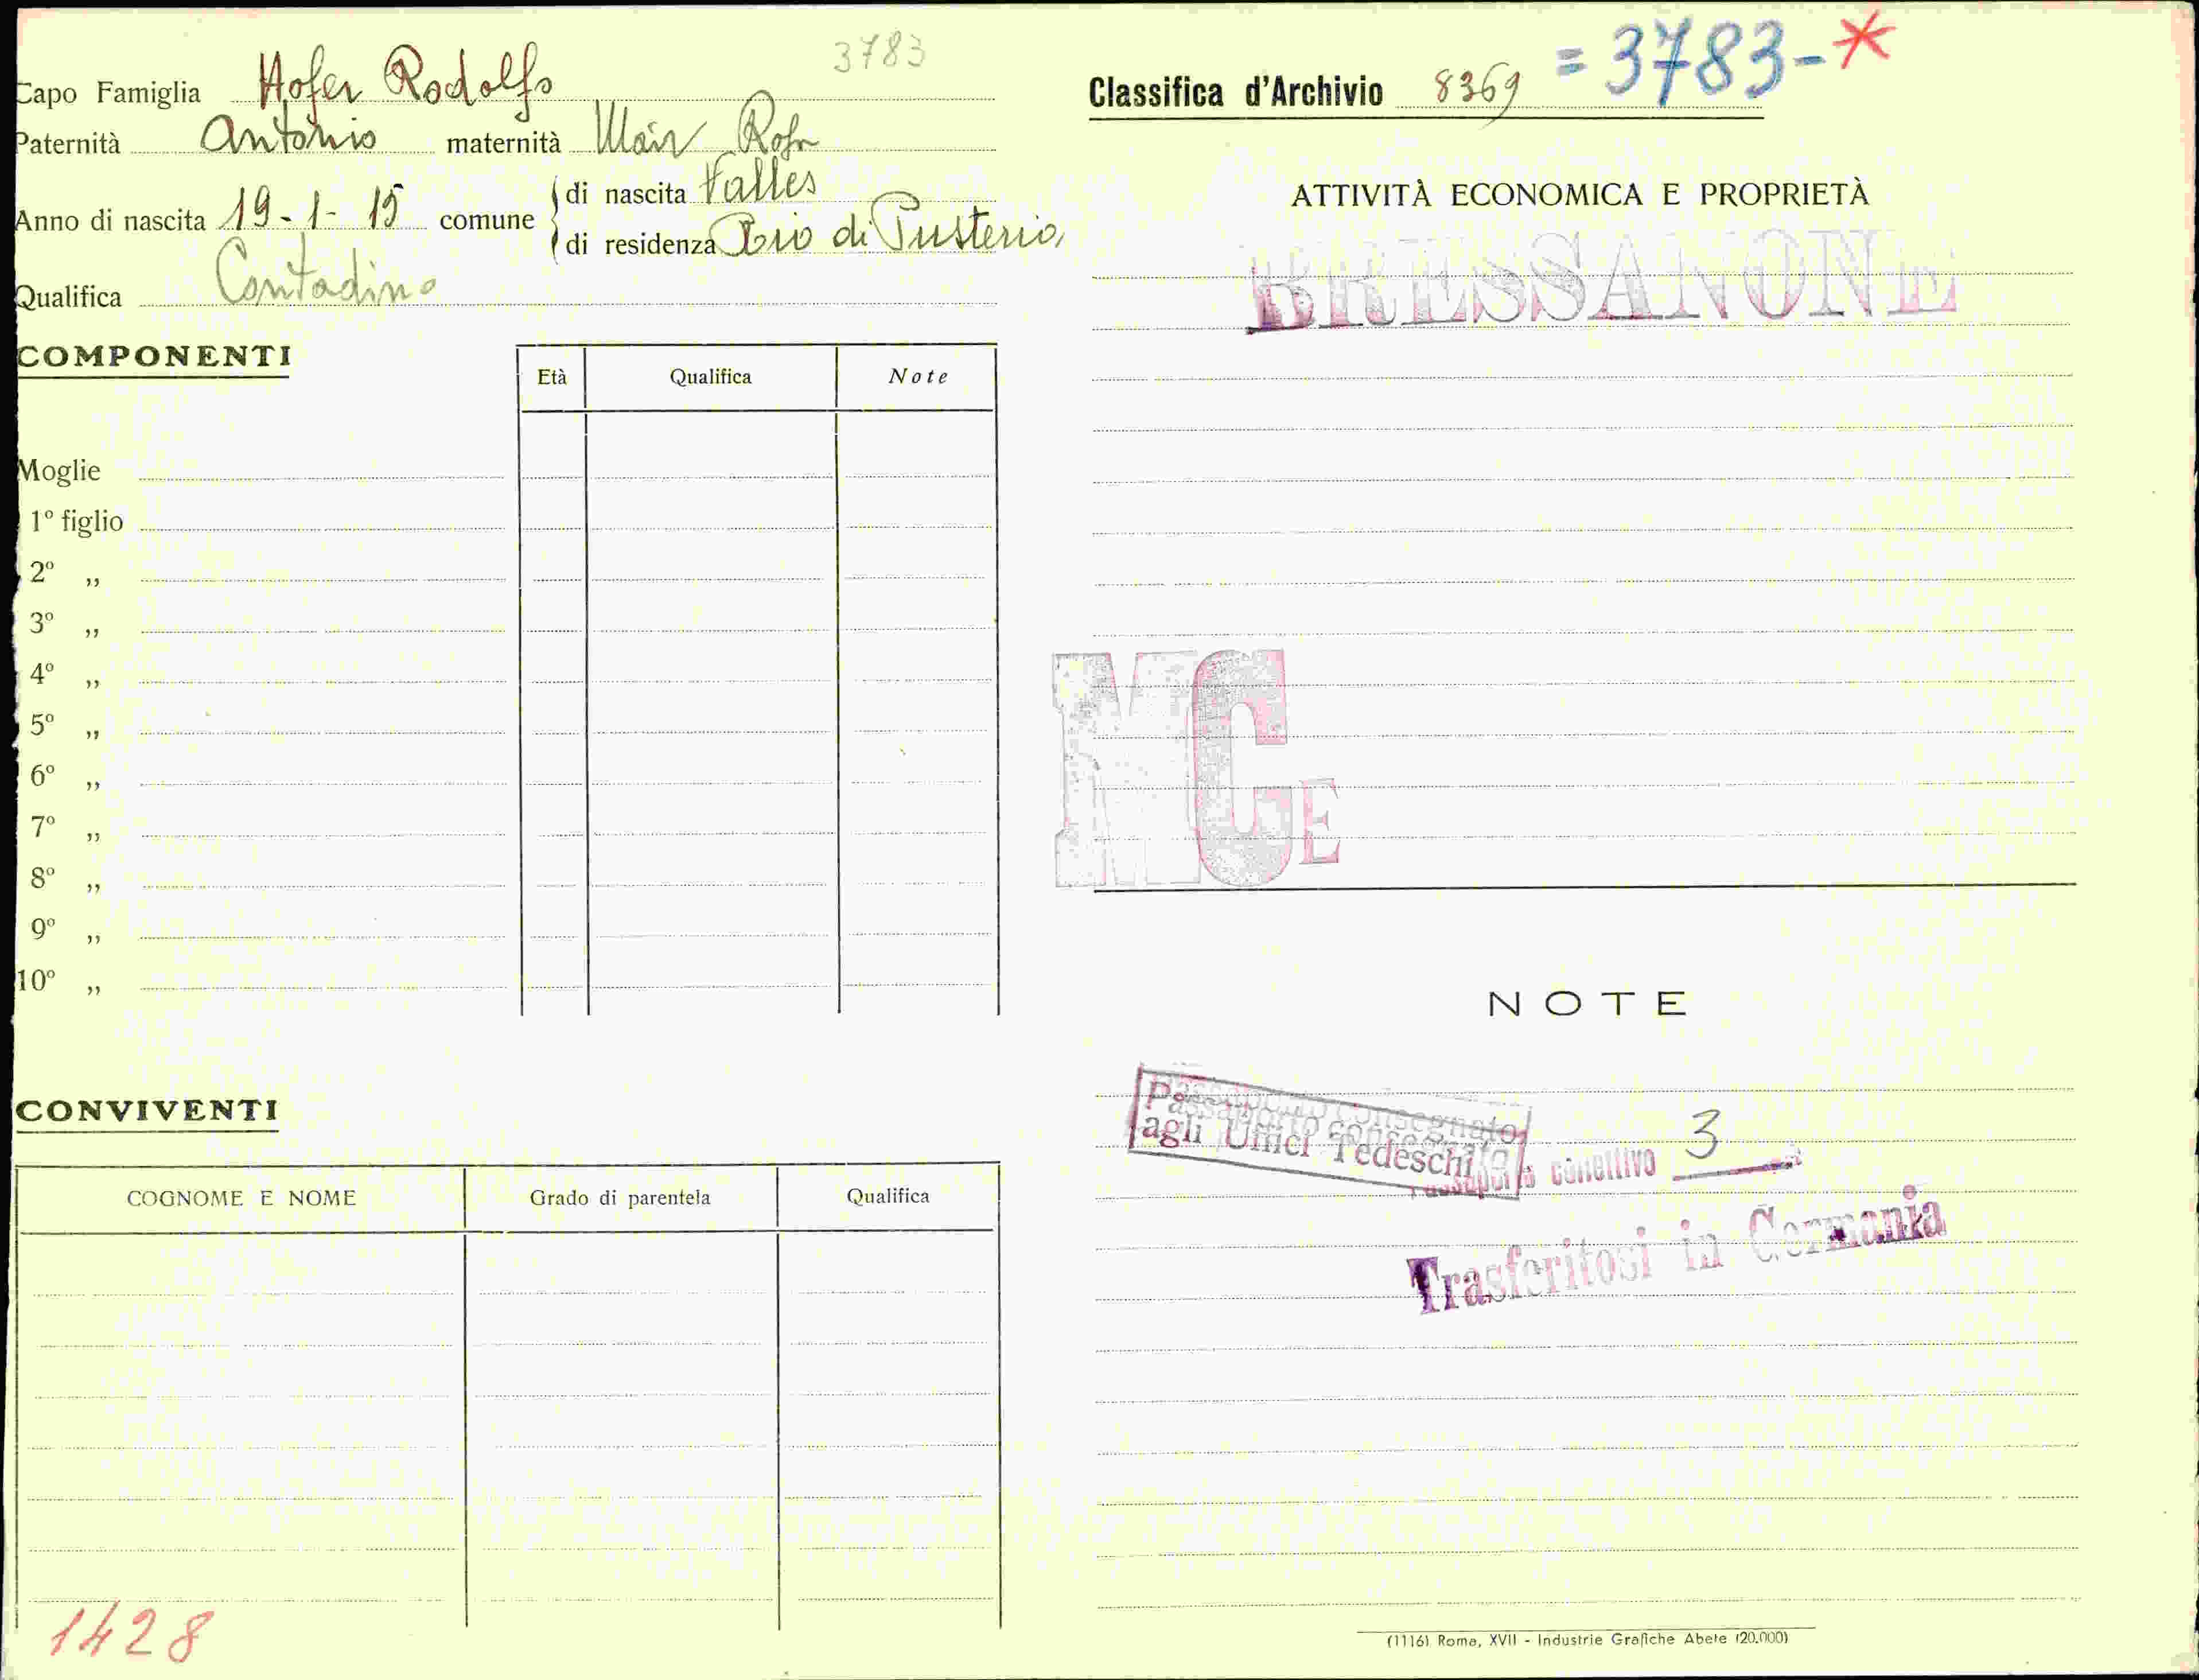 3783
Capo Famiglia Hofer Rodolfo
Paternità Antonio maternità Mair
Anno di nascita 19-1-15 comune di nascita Valles
di residenza Rio di Pusteria
Qualifica Contadino
COMPONENTI
Età Qualifica Note
Moglie
1º figlio
2º „
3º „
4º „
5º „
6º „
7º „
8º „
9º „
10º „
CONVIVENTI
COGNOME E NOME Grado di parentela Qualifica
1428
Classifica d'Archivio 8369 = 3783-*
ATTIVITÀ ECONOMICA E PROPRIETÀ
BRESSANONE
MCE
NOTE
Passaporto consegnato
agli Uffici Tedeschi
Passaporto collettivo 3
Trasferitosi in Germania
(1116) Roma, XVII - Industrie Grafiche Abete (20.000)